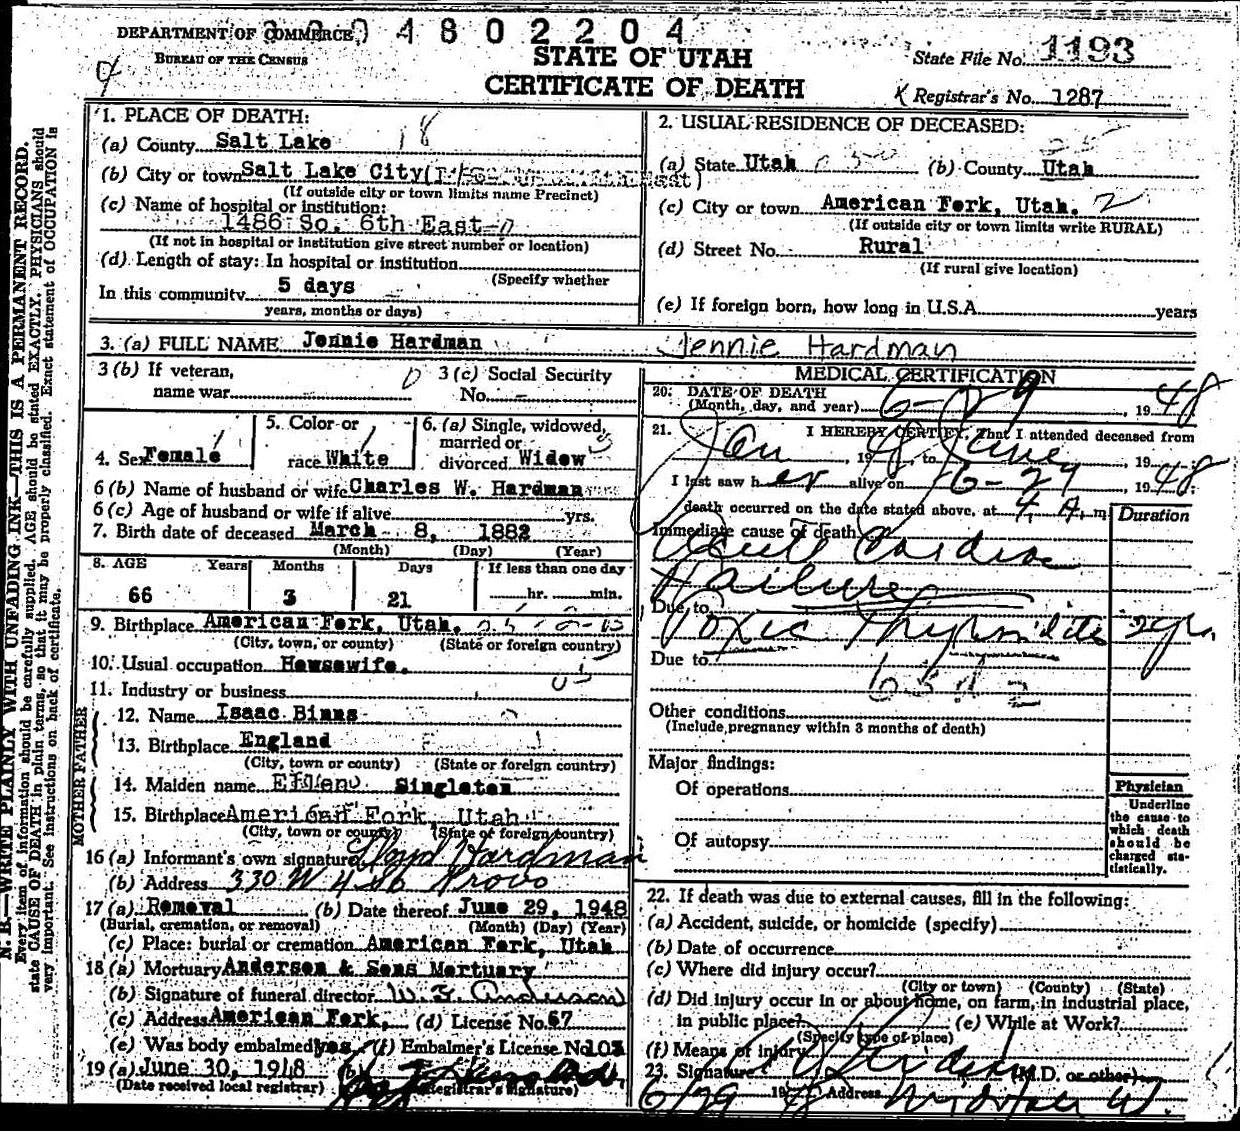 DEPARTMENT OF COMMERCE
4 8 0 2 2 0 4
BUREAU OF THE CENSUS
STATE OF UTAH
CERTIFICATE OF DEATH
State File No. 1193
Registrar's No. 1287
N. B.—WRITE PLAINLY WITH UNFADING INK—THIS IS A PERMANENT RECORD.
Every item of information should be carefully supplied. AGE should be stated EXACTLY. PHYSICIANS should
state CAUSE OF DEATH in plain terms, so that it may be properly classified. Exact statement of OCCUPATION is
very important. See instructions on back of certificate.
1. PLACE OF DEATH:
(a) County Salt Lake 18
(b) City or town Salt Lake City
(If outside city or town limits name Precinct)
(c) Name of hospital or institution:
1486 So. 6th East
(If not in hospital or institution give street number or location)
(d) Length of stay: In hospital or institution
(Specify whether
In this community 5 days
years, months or days)
2. USUAL RESIDENCE OF DECEASED:
(a) State Utah (b) County Utah
(c) City or town American Fork, Utah. 2
(If outside city or town limits write RURAL)
(d) Street No. Rural
(If rural give location)
(e) If foreign born, how long in U.S.A. years
3. (a) FULL NAME Jennie Hardman Jennie Hardman
3 (b) If veteran, name war
3 (c) Social Security No. -
4. Sex Female
5. Color or race White
6. (a) Single, widowed, married or divorced Widow
6 (b) Name of husband or wife Charles W. Hardman
6 (c) Age of husband or wife if alive yrs.
7. Birth date of deceased March 8, 1882
(Month) (Day) (Year)
8. AGE Years Months Days If less than one day
66 3 21 hr. min.
9. Birthplace American Fork, Utah.
(City, town, or county) (State or foreign country)
10. Usual occupation Housewife.
11. Industry or business
FATHER
12. Name Isaac Binns
13. Birthplace England
(City, town or county) (State or foreign country)
MOTHER
14. Maiden name Ellen Singleton
15. Birthplace American Fork, Utah
(City, town or county) (State or foreign country)
16 (a) Informant's own signature Lloyd Hardman
(b) Address 330 W 4 So Provo
17 (a) Removal (b) Date thereof June 29, 1948
(Burial, cremation, or removal) (Month) (Day) (Year)
(c) Place: burial or cremation American Fork, Utah
18 (a) Mortuary Anderson & Sons Mortuary
(b) Signature of funeral director W. Anderson
(c) Address American Fork, (d) License No. 67
(e) Was body embalmed yes (f) Embalmer's License No. 103
19 (a) June 30, 1948 (b)
(Date received local registrar) (Registrar's signature)
MEDICAL CERTIFICATION
20. DATE OF DEATH
(Month, day, and year) 6-29, 1948
21. I HEREBY CERTIFY, That I attended deceased from
Jan, 19 48, to June 29, 19 48
I last saw her alive on 6-29 19 48
death occurred on the date stated above, at 4 A. m
Duration
Immediate cause of death
Acute Cardiac
Failure
Due to
Toxic Thyroiditis 2 yrs.
Due to
Other conditions
(Include pregnancy within 3 months of death)
Major findings:
Of operations
Of autopsy
Physician
Underline
the cause to
which death
should be
charged sta-
tistically.
22. If death was due to external causes, fill in the following:
(a) Accident, suicide, or homicide (specify)
(b) Date of occurrence
(c) Where did injury occur?
(City or town) (County) (State)
(d) Did injury occur in or about home, on farm, in industrial place,
in public place? (e) While at Work?
(Specify type of place)
(f) Means of injury
23. Signature (M.D. or other)
6/29 19 48 Address